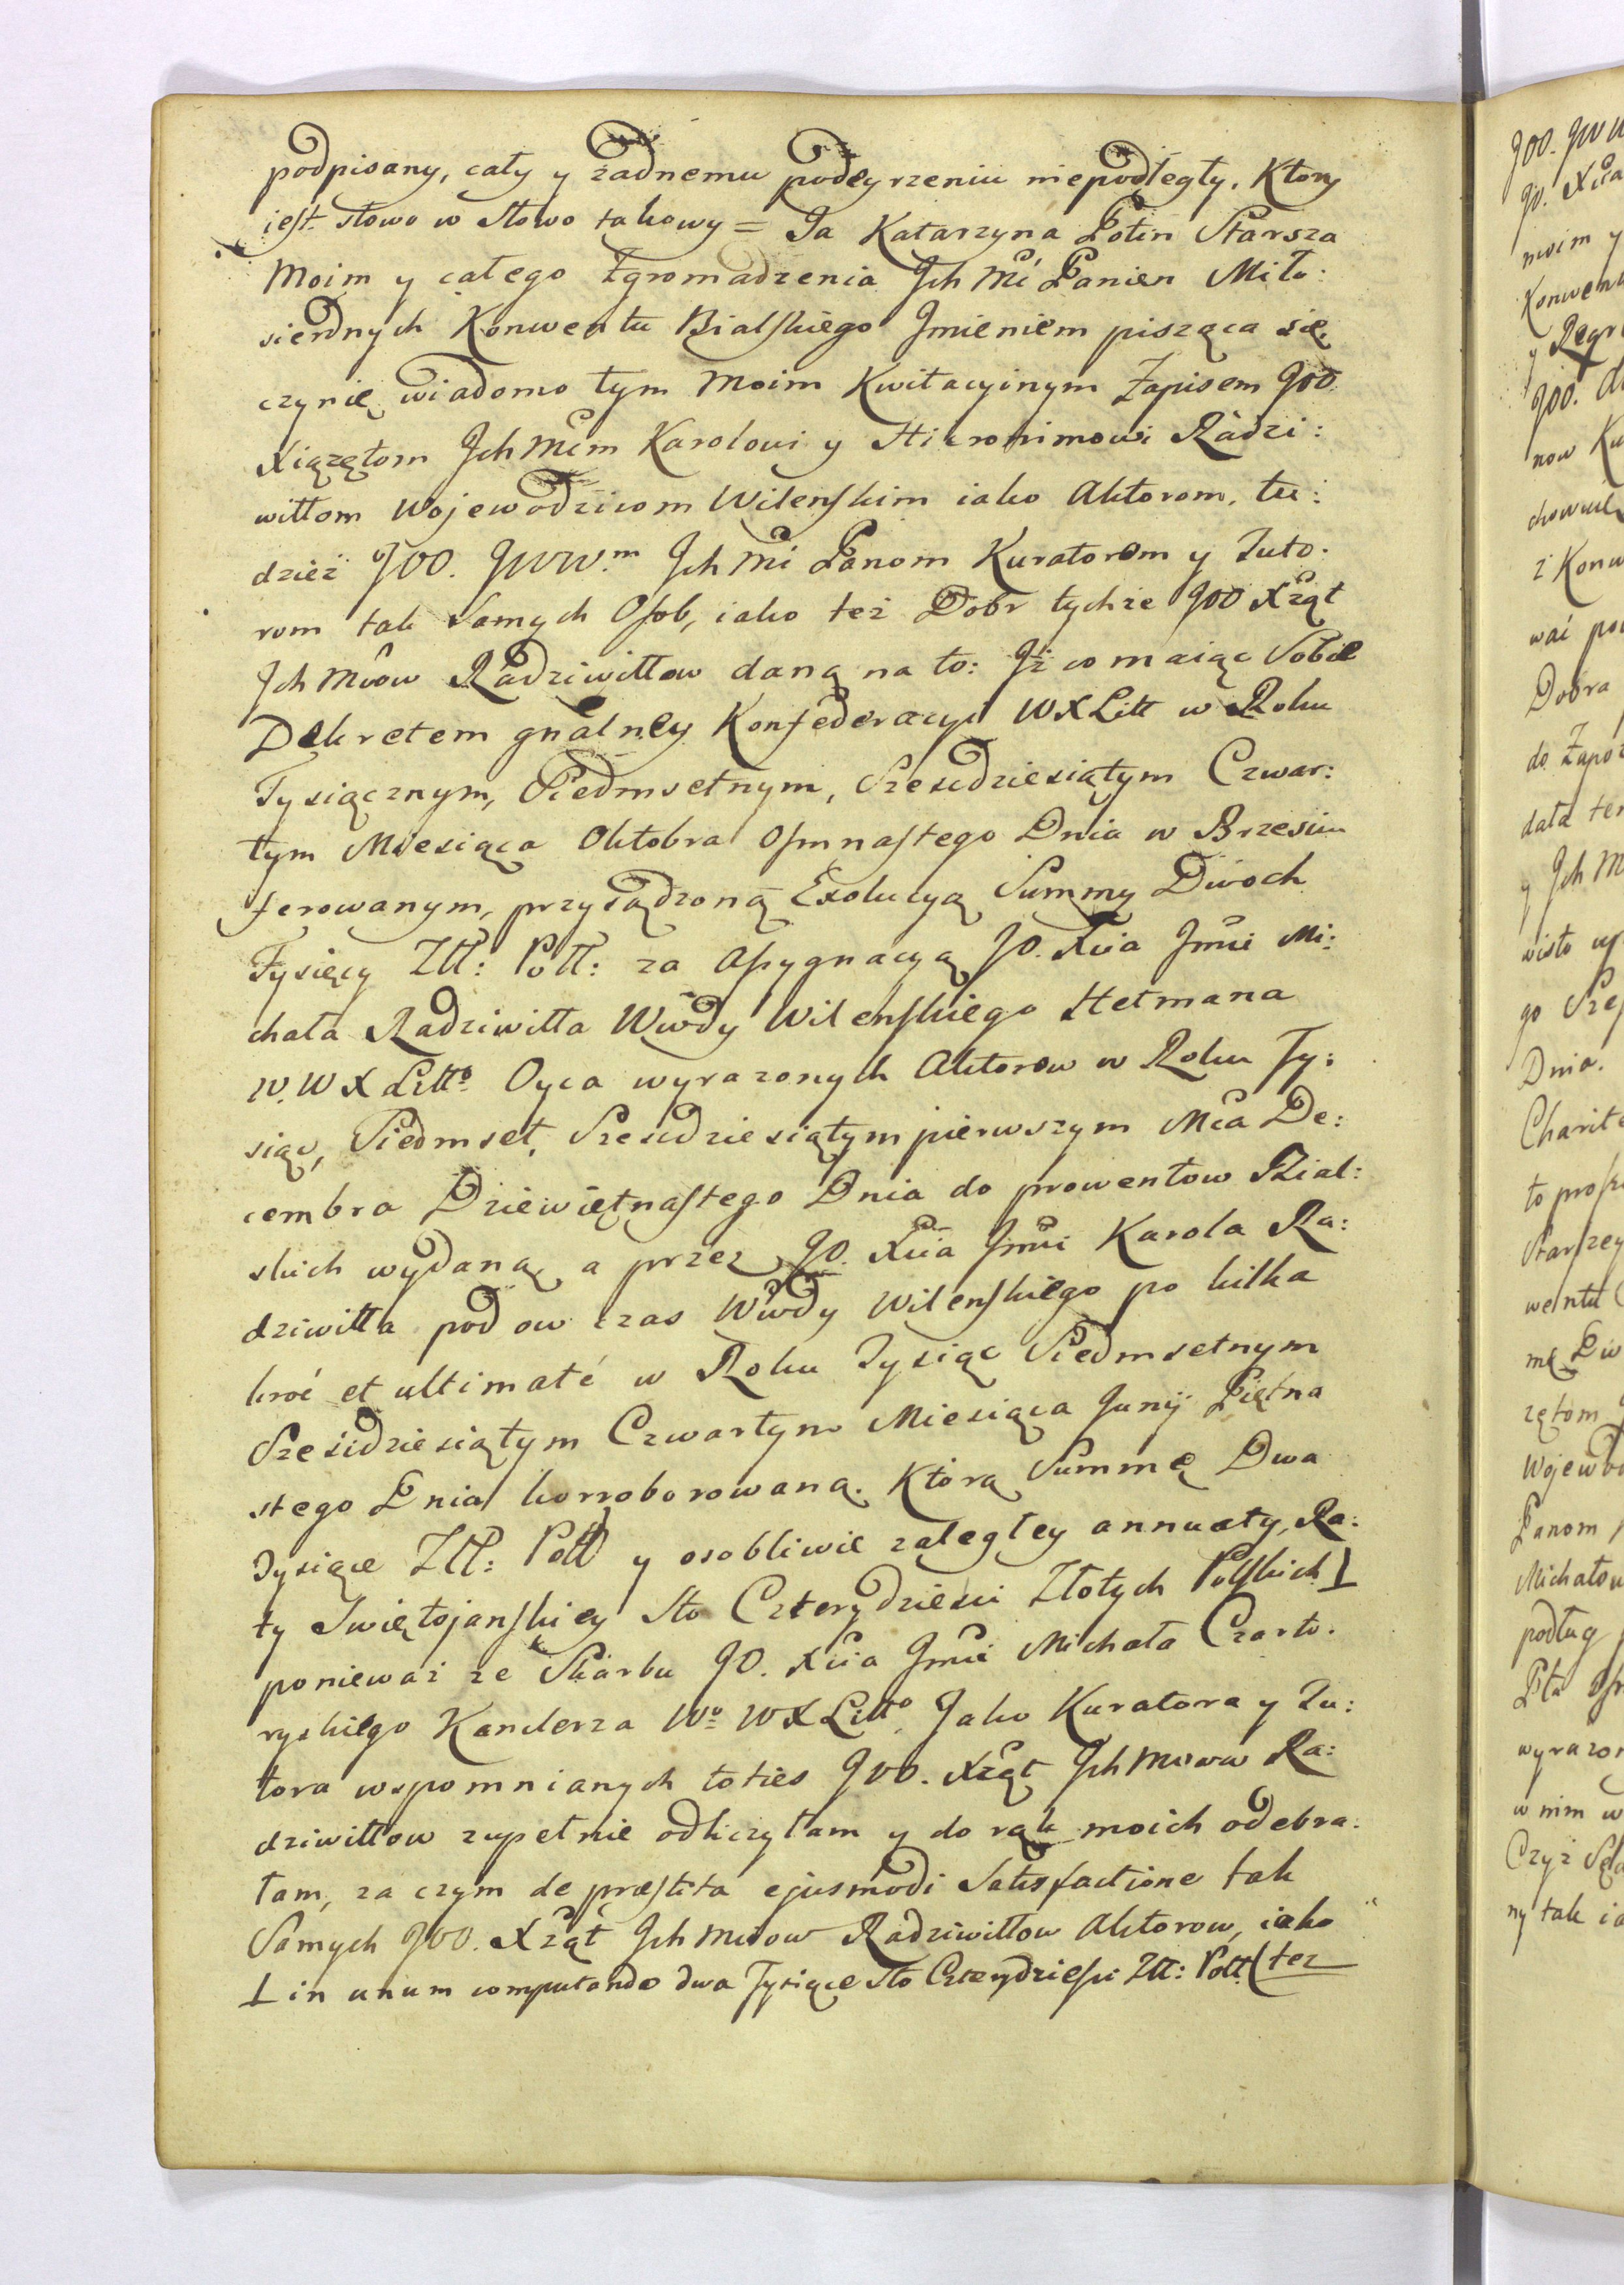 podpisany, cały y żadnemu podeyrzeniu niepodległy. Ktory
iest słowo w słowo takowy = Ja Katarzyna Potin Starsza
Moim y całego Zgromadzenia Jch Mć Panien Miło:
siernych Konwentu Bialskiego Jmieniem pisząca się
czynię wiadomo tym moim Kwitacyinym Zapisem JOO
Xiążętom Jch Mćm Karolowi y Hieronimowi Radzi:
wiłłom Wojewodzicom Wilenskim iako Aktorom, tu:
dzież JOO. JWW.m Jch Mć Panom Kuratorom y Tuto.
rom tak Samych Osob, iako też Dobr tychże JOO Xżąt
Jch Mćow Radziwiłłow daną na to: Jż co maiąc Sobie
Dekretem gnalney Konfederacyi WXLitt w Roku
Tysiącznym, Siedmsetnym, Szesdziesiątym Czwar:
tym Miesiąca Oktobra Osmnastego Dnia w Brzesciu
ferowanym, przysądzoną Exolucyą Summy Dwoch
Tysięcy Złł: Poll: za Assygnacyą JO. Xcia Jmći Mi:
chała Radziwiłła Wwdy Wilenskiego Hetmana
W. W X Litto Oyca wyrazonych Aktorow w Roku Ty:
siąc, Siedmset, Szesdziesiątym pierwszym Mca De:
cembra Dziewiętnastego Dnia do prowentow Bial:
skich wydaną, a przez JO. Xcia Jmći Karola Ra:
dziwiłła pod ow czas Wwdy Wilenskiego po kilka
kroć et ultimaté w Roku Tysiąc Siedmsetnym
Szeсdziesiątym Czwartym Miesiąca Junij Piętna
stego Dnia korroborowaną. Ktorą Summę Dwa
Tysiące Złł: Poll y osobliwie zaległey annuaty, Ra:
ty Swiętojanskiey sto Czterydziesci Złotych Polskich ⊥
ponieważ ze Skarbu JO. Xcia Jmći Michała Czarto.
ryskiego Kanclerza Wo WXLitto Jako Kuratora y Tu:
tora wspomnianych toties JOO. Xżąt Jch Mcow Ra:
dziwiłłow zupełnie odliczyłam y do rąk moich odebra:
łam, za czym de præstita ejusmodi Satisfactione tak
Samych JOO. Xżąt Jch Mcow Radziwiłłow Aktorow, iako
⊥ in unum computando dwa Tysiące sto Czterydziesci Złł: Poll: (tez